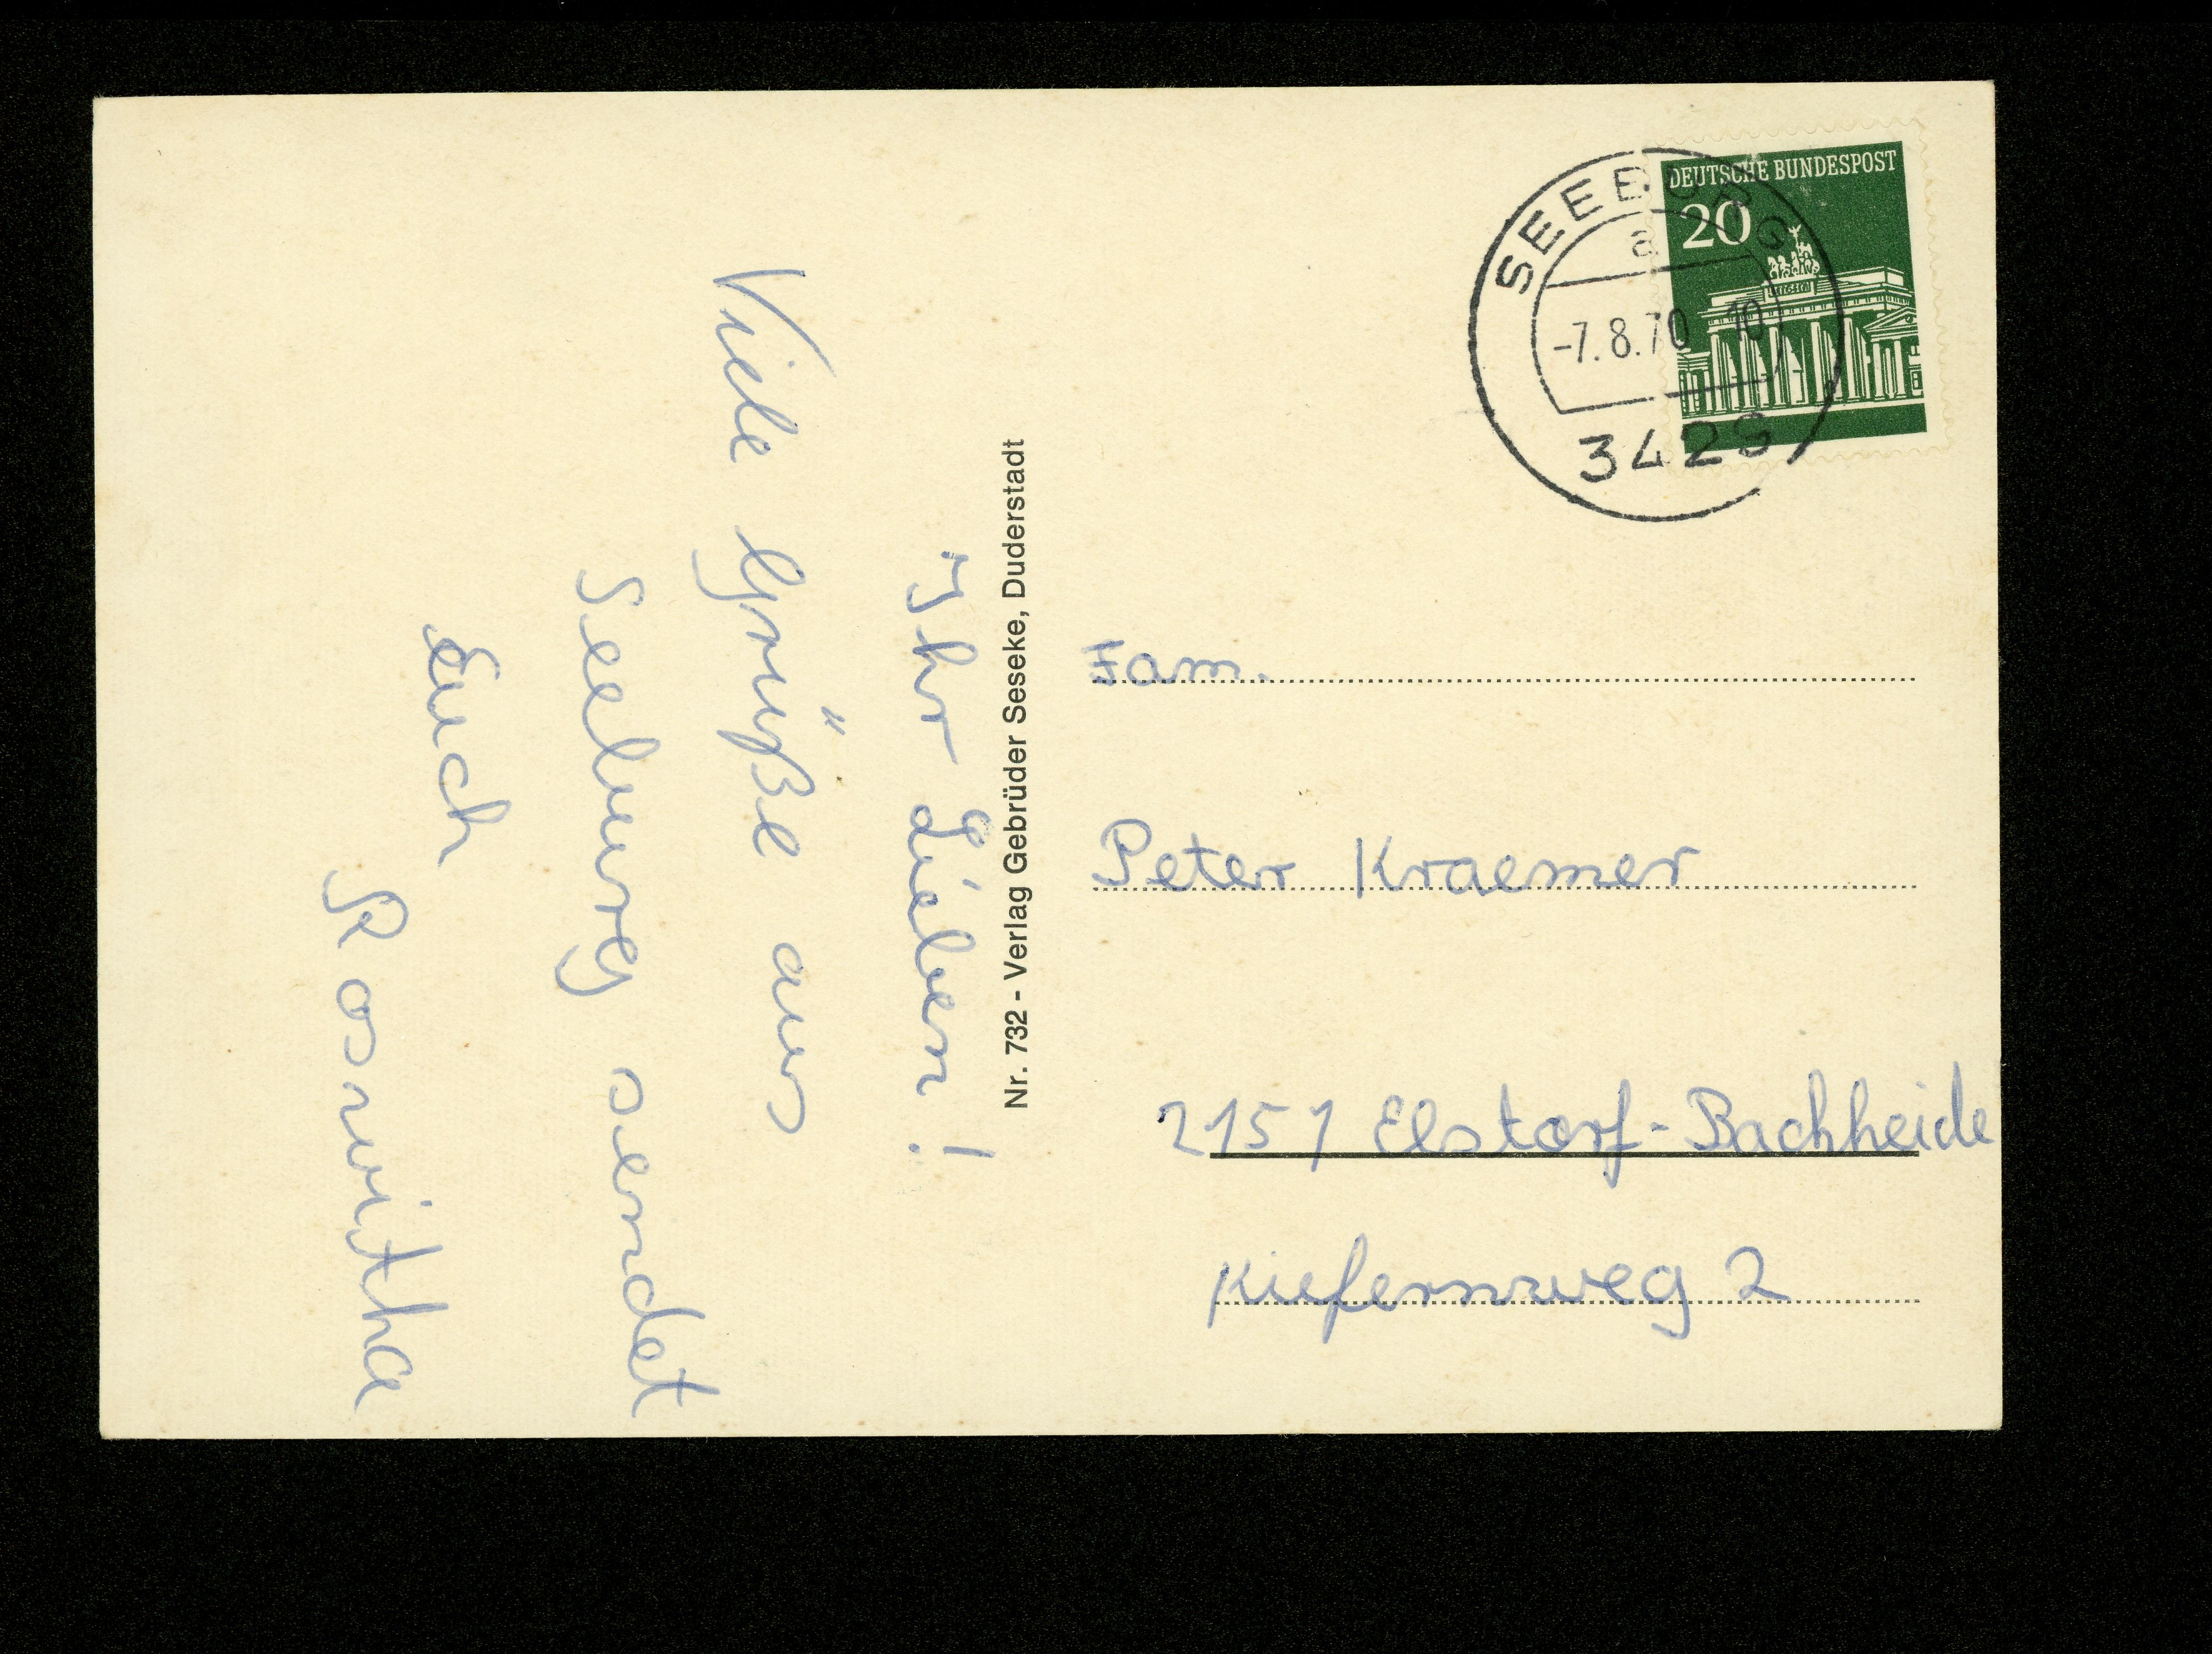 Ihr Lieben!
Viele Grüße aus
Seeburg sendet
Euch
Roswitha
Nr. 732 - Verlag Gebrüder Seseke, Duderstadt
DEUTSCHE BUNDESPOST
20
SEEBURG
a
-7.8.70 10
Fam.
Peter Kraemer
2151 Elstorf-Bachheide
Kiefernweg 2